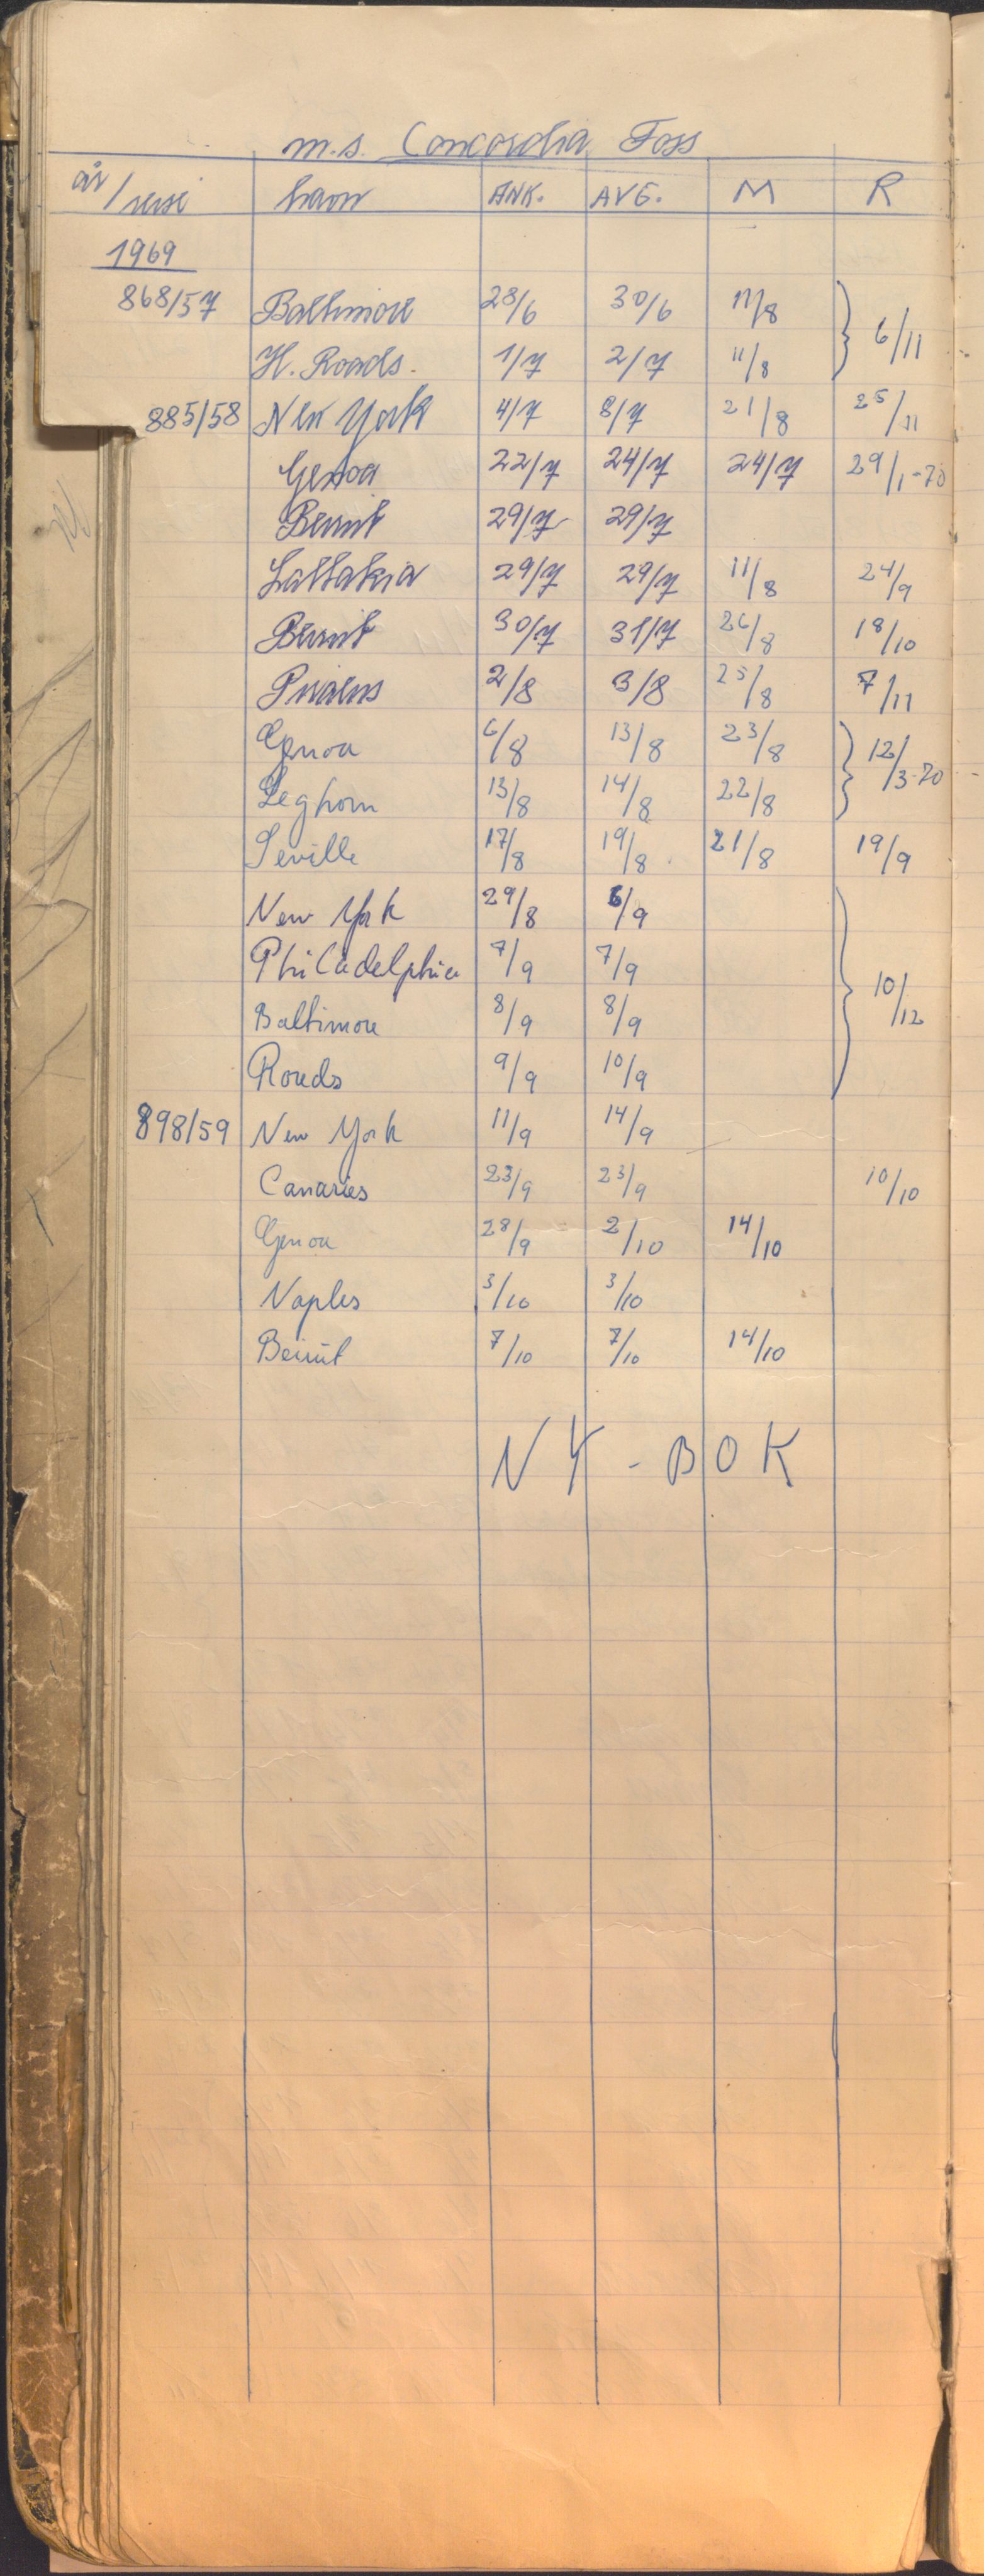 m.s. Concordia Foss
år/reise havn ANK. AVG. M R
1969
868/57 Baltimore 28/6 30/6 11/8 6/11
H. Roads. 1/7 2/7 11/8
885/58 New York 4/7 8/7 21/8 25/11
Genoa 22/7 24/7 24/7 29/1-70
Beirut 29/7 29/7
Lattakia 29/7 29/7 11/8 24/9
Beirut 30/7 31/7 26/8 18/10
Piraeus 2/8 3/8 25/8 7/11
Genoa 6/8 13/8 23/8 12/3-70
Leghorn 13/8 14/8 22/8
Seville 17/8 19/8 21/8 19/9
New York 29/8 6/9 10/12
Philadelphia 7/9 7/9
Baltimore 8/9 8/9
Roads 9/9 10/9
898/59 New York 11/9 14/9
Canaries 23/9 23/9 10/10
Genoa 28/9 2/10 14/10
Naples 3/10 3/10
Beirut 7/10 7/10 14/10
NY - BOK